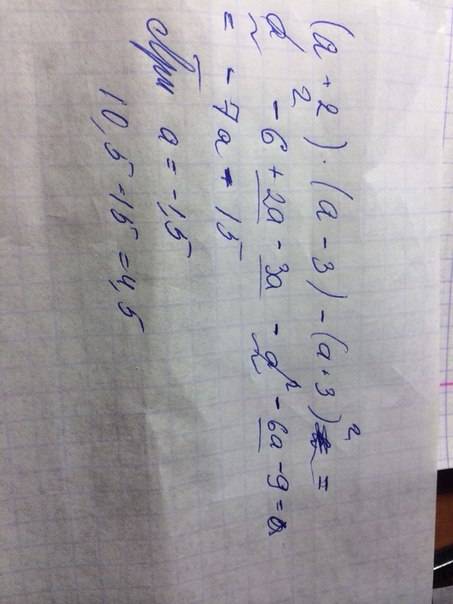 (a+2)·(a-3)-(a+3)²=
a²-6+2a-3a-a²-6a-9=
= -7a-15
При a=-1,5
10,5-15=4,5